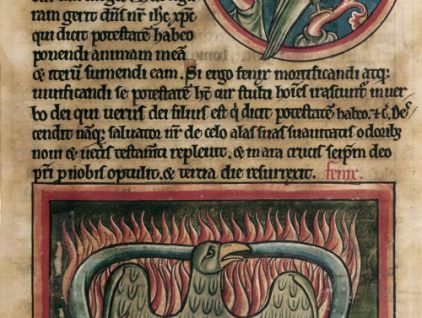 ram gerit dñi nr̄i ihc xp̄c
qui dicit potestatē habeo
ponendi animam meā
& iterū sumendi eam. Si ergo fenix mortificandi atq;
uiuificandi se potestatē ht̄ cur stulti hoīes irascunt̄ in uer
bo dei qui uerus dei filius est q̄ dicit potestatē habeo. &c̄. Des
cendit nāq; saluator nr̄ de celo alas suas suauitatis odorib;
noui & uetīs testam̄ti repleuit. & in ara crucis seip̄m deo
pr̄i p̄ nobis optulit. & tercia die resurrexit. fenix.